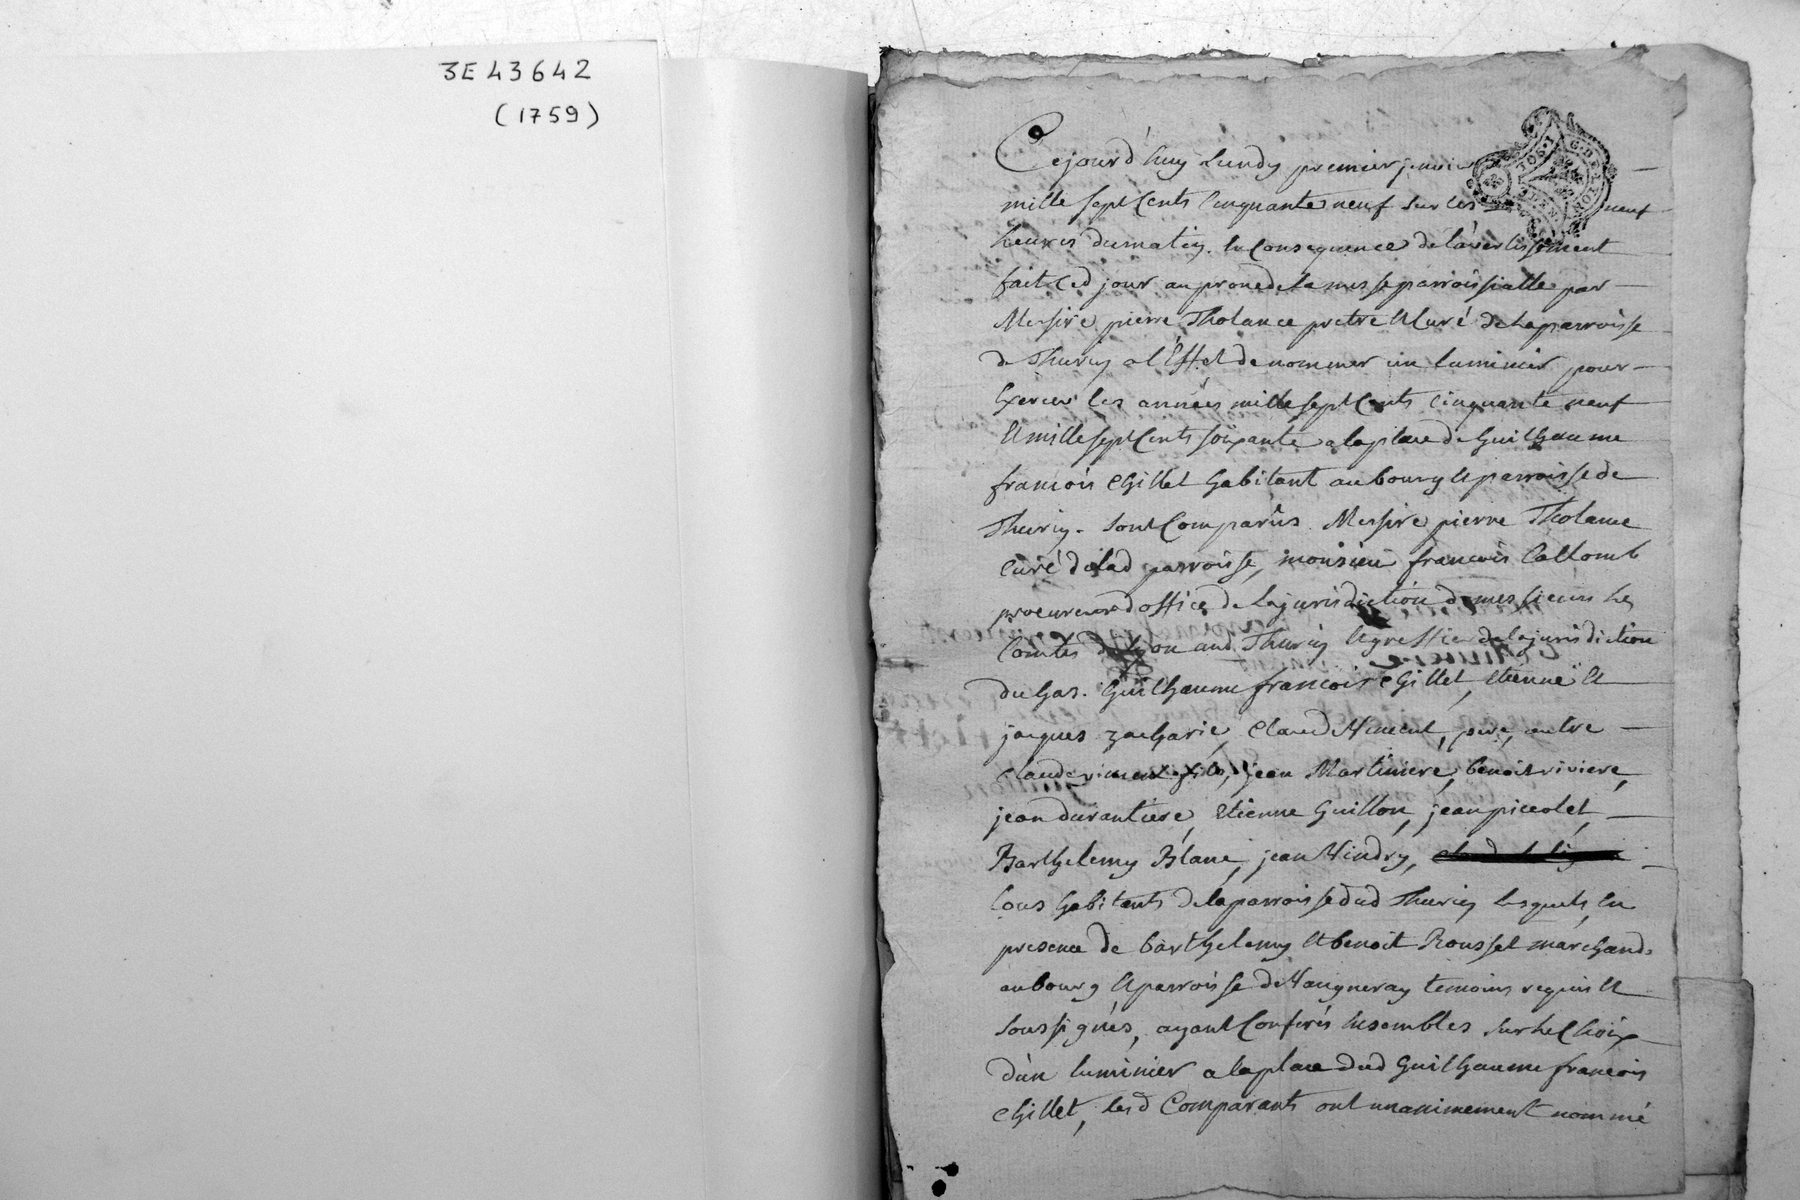 3E43642
(1759)
Cejourd'huy Lundy premier janvier
mille sept Cents Cinquante neuf sur les neuf
heures du matin. En Consequence de l'avertissement
fait Ced jour au prone de la messe parroissialle par
Messire pierre Tholance pretre & Curé de la parroisse
de Thurin a l'Effet de nommer un luminier pour
Exercer les années mille sept Cents Cinquante neuf
& mille sept Cents soixante a la place de Guilhaume
francois Gillet habitant au bourg & parroisse de
Thurin. sont Comparûs Messire pierre Tholance
Curé de lad parroisse, monsieur francois Collomb
procureur d'office de la jurisdiction de messieurs les
Comtes de Lyon aud Thurin & greffier de la jurisdiction
du Gas. Guilhaume francois Gillet, Etienne &
jacques zacharie, Claude Niment, pere, autre
Claude niment fils, jean Martiniere, benoit riviere,
jean durantiere, Etienne Guillon, jean piccolet,
Barthelemy Blanc, jean Vindry,
tous habitants de la parroisse dud Thurin lesquels, En
presence de barthelemy & benoit Rousset marchands
au bourg & parroisse de Vaugneray temoins requis &
soussignés, ayant Conferés Ensembles sur le Choix
d'un luminier a la place dud Guilhaume francois
Gillet, lesd Comparants ont unanimement nommé